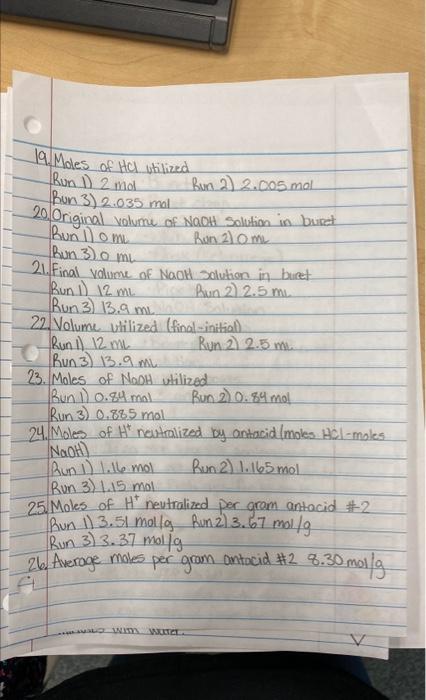 19. Moles of HCl utilized
Run 1) 2 mol Run 2) 2.005 mol
Run 3) 2.035 mol
20. Original volume of NaOH solution in buret
Run 1) 0 mL Run 2) 0 mL
Run 3) 0 mL
21. Final volume of NaOH solution in buret
Run 1) 12 mL Run 2) 2.5 mL
Run 3) 13.9 mL
22. Volume utilized (final-initial)
Run 1) 12 mL Run 2) 2.5 mL
Run 3) 13.9 mL
23. Moles of NaOH utilized
Run 1) 0.84 mol Run 2) 0.84 mol
Run 3) 0.885 mol
24. Moles of H+ neutralized by antacid (moles HCl-moles
NaOH)
Run 1) 1.16 mol Run 2) 1.165 mol
Run 3) 1.15 mol
25. Moles of H+ neutralized per gram antacid #2
Run 1) 3.51 mol/g Run 2) 3.67 mol/g
Run 3) 3.37 mol/g
26. Average moles per gram antacid #2 8.30 mol/g
with water.